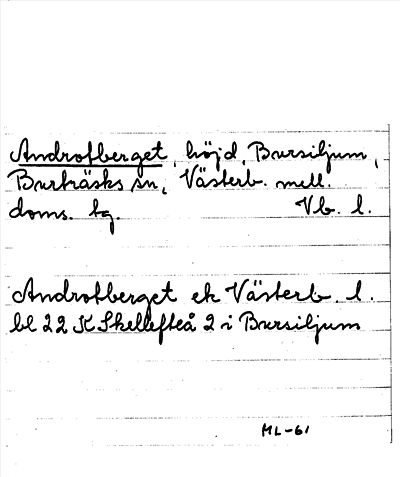 Androfberget, höjd, Bursiljum,
Burträsks sn, Västerb. mell.
doms. tg. Vb. l.
Androfberget ek Västerb. l.
bl 22 K Skellefteå 2 i Bursiljum
ML-61